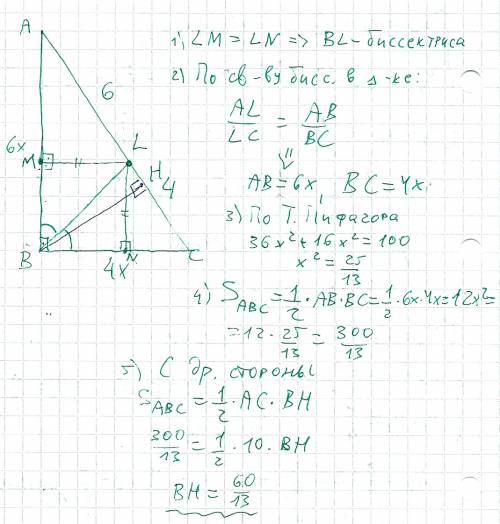 A
6
6x
M
L
H
4
B
4x
N
C
1) LM = LN => BL - биссектриса
2) По св-ву бисс. в Δ-ке:
AL/LC = AB/BC
⇓
AB = 6x, BC = 4x.
3) По Т. Пифагора
36x² + 16x² = 100
x² = 25/13
4) S_ABC = 1/2 · AB · BC = 1/2 · 6x · 4x = 12x² =
= 12 · 25/13 = 300/13
5) С др. стороны
S_ABC = 1/2 · AC · BH
300/13 = 1/2 · 10 · BH
BH = 60/13